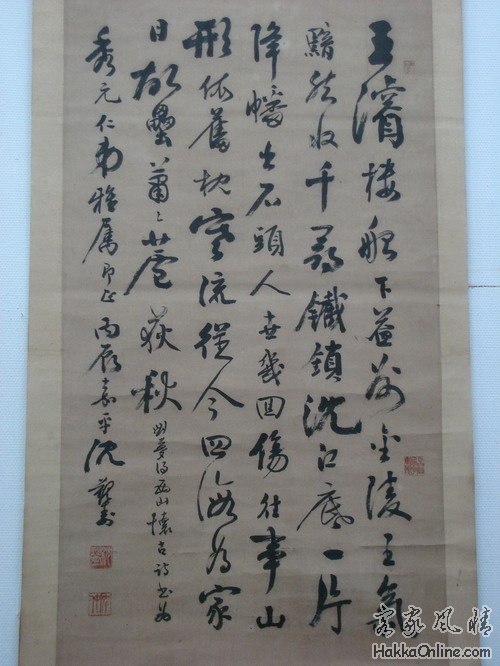 王濬樓船下益州金陵王氣
黯然收千尋鐵鎖沈江底一片
降幡出石頭人世幾回傷往事山
形依舊枕寒流從今四海為家
日故壘蕭〻蘆荻秋 劉夢得西山懷古詩書為
秀元仁弟雅屬即正 丙辰嘉平沈
客家風情
HakkaOnline.com